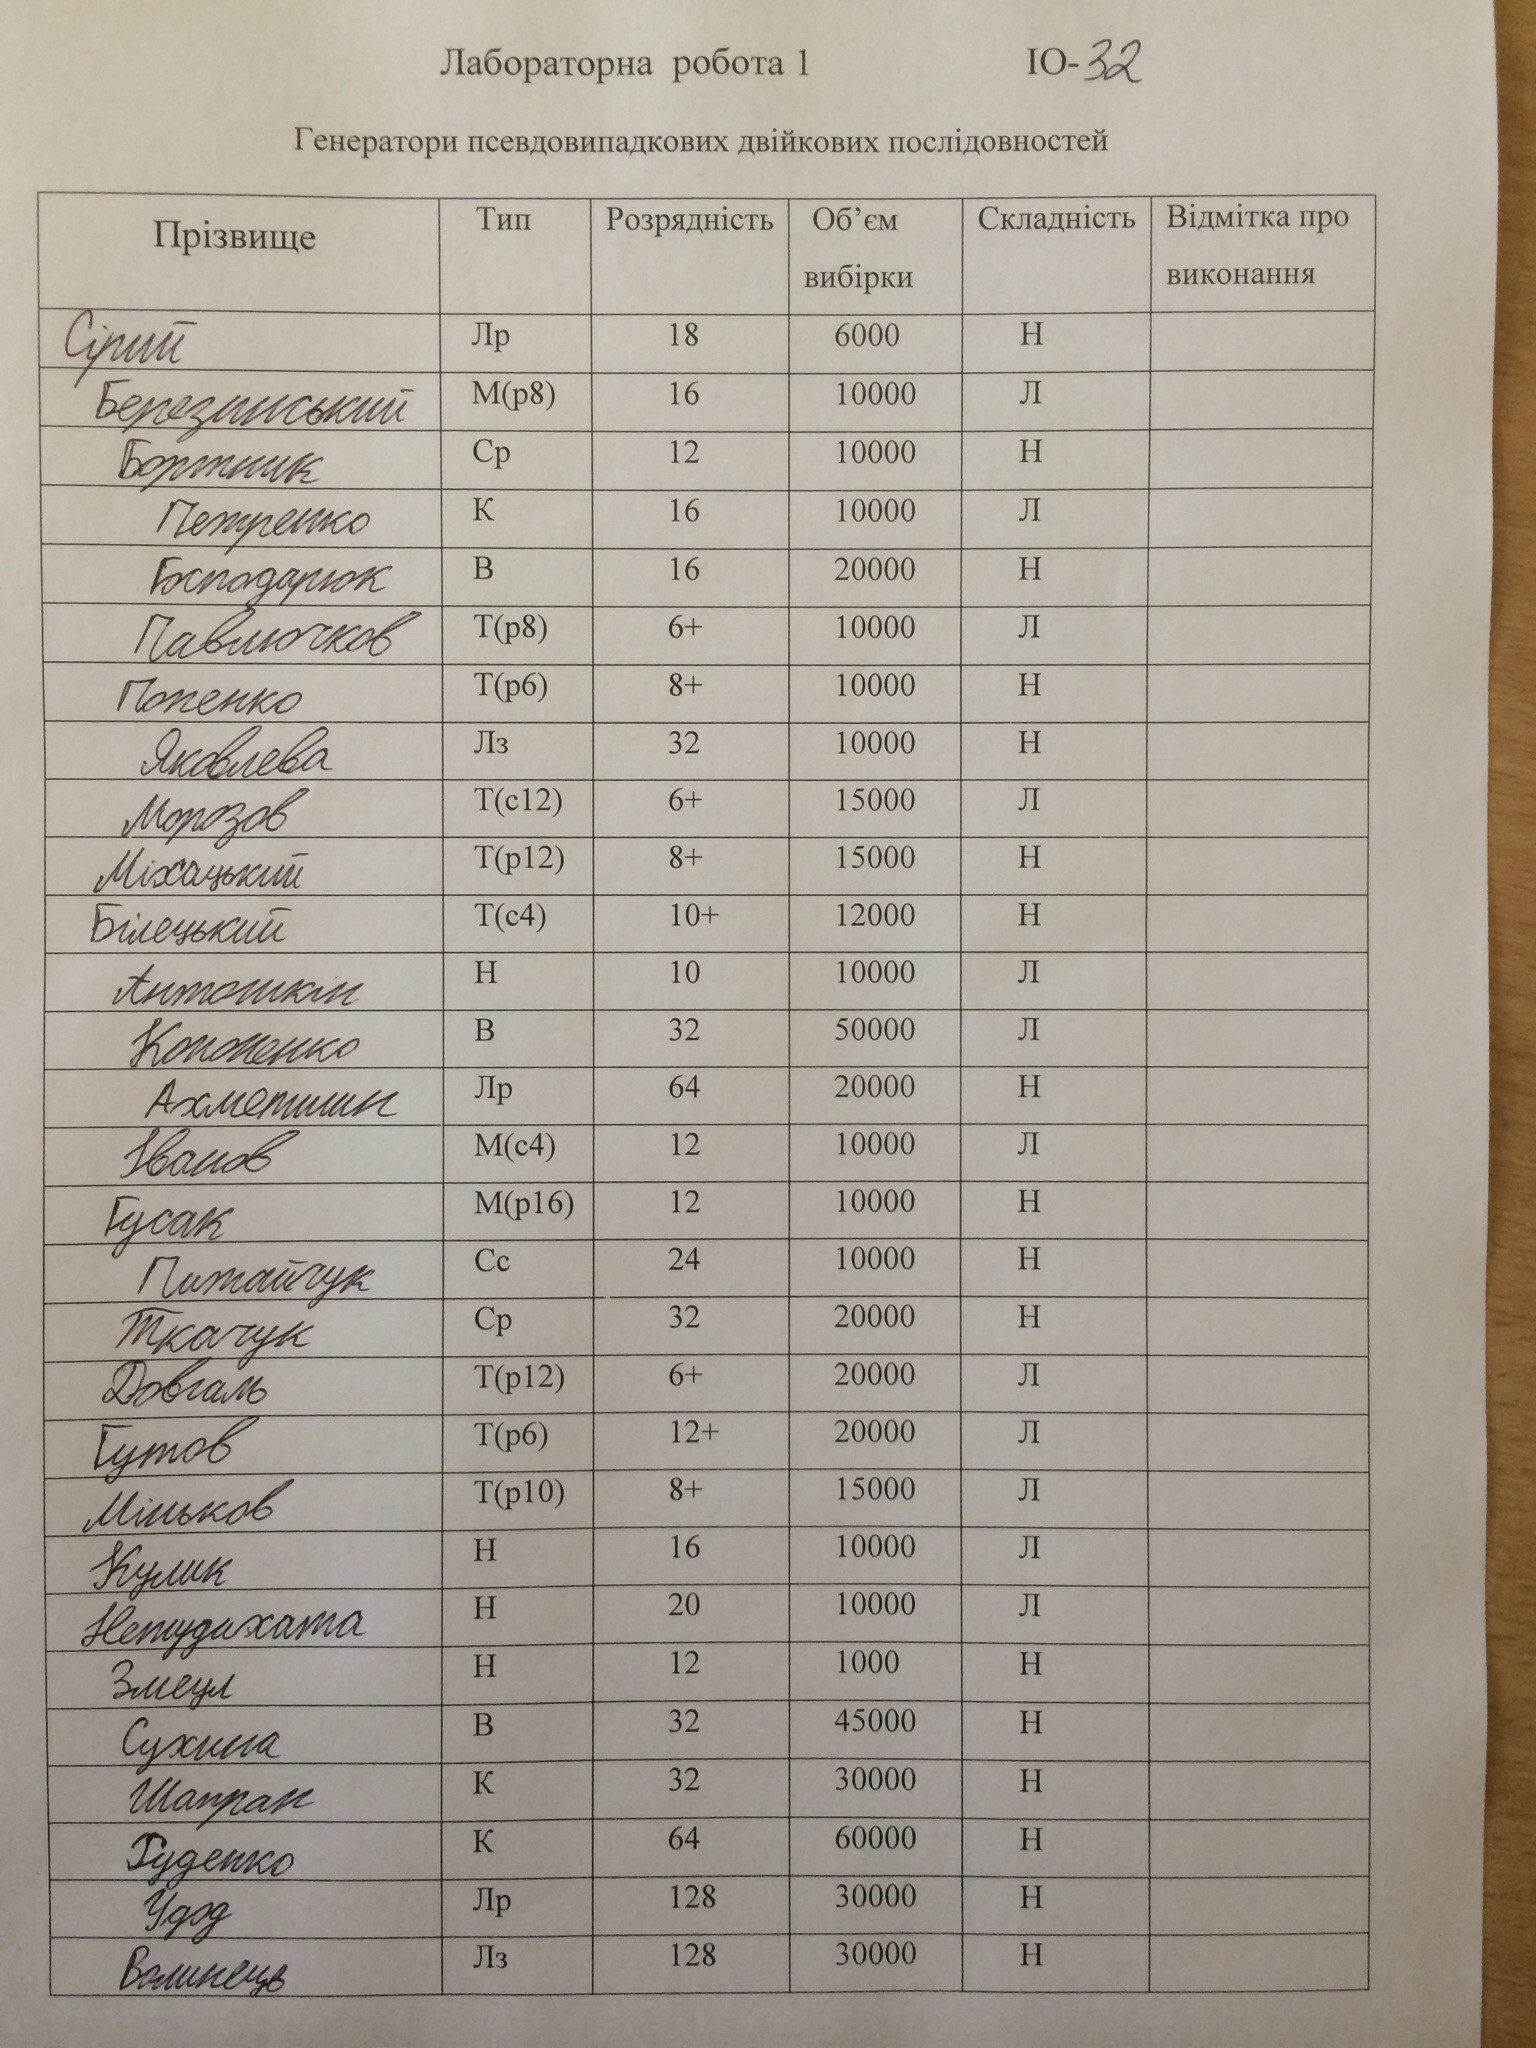 Лабораторна робота 1 ІО-32
Генератори псевдовипадкових двійкових послідовностей
Прізвище Тип Розрядність Об’єм вибірки Складність Відмітка про виконання
Сірий Лр 18 6000 Н
Березинський М(р8) 16 10000 Л
Бортник Ср 12 10000 Н
Петренко К 16 10000 Л
Господарюк В 16 20000 Н
Павлючков Т(р8) 6+ 10000 Л
Попенко Т(р6) 8+ 10000 Н
Яковлева Лз 32 10000 Н
Морозов Т(с12) 6+ 15000 Л
Міхацький Т(р12) 8+ 15000 Н
Білецький Т(с4) 10+ 12000 Н
Антошкін Н 10 10000 Л
Кононенко В 32 50000 Л
Ахметшин Лр 64 20000 Н
Іванов М(с4) 12 10000 Л
Гусак М(р16) 12 10000 Н
Питайчук Сс 24 10000 Н
Ткачук Ср 32 20000 Н
Довгаль Т(р12) 6+ 20000 Л
Гутов Т(р6) 12+ 20000 Л
Міньков Т(р10) 8+ 15000 Л
Кулик Н 16 10000 Л
Непийдихата Н 20 10000 Л
Змеул Н 12 1000 Н
Сухина В 32 45000 Н
Шапран К 32 30000 Н
Руденко К 64 60000 Н
Удод Лр 128 30000 Н
Волинець Лз 128 30000 Н